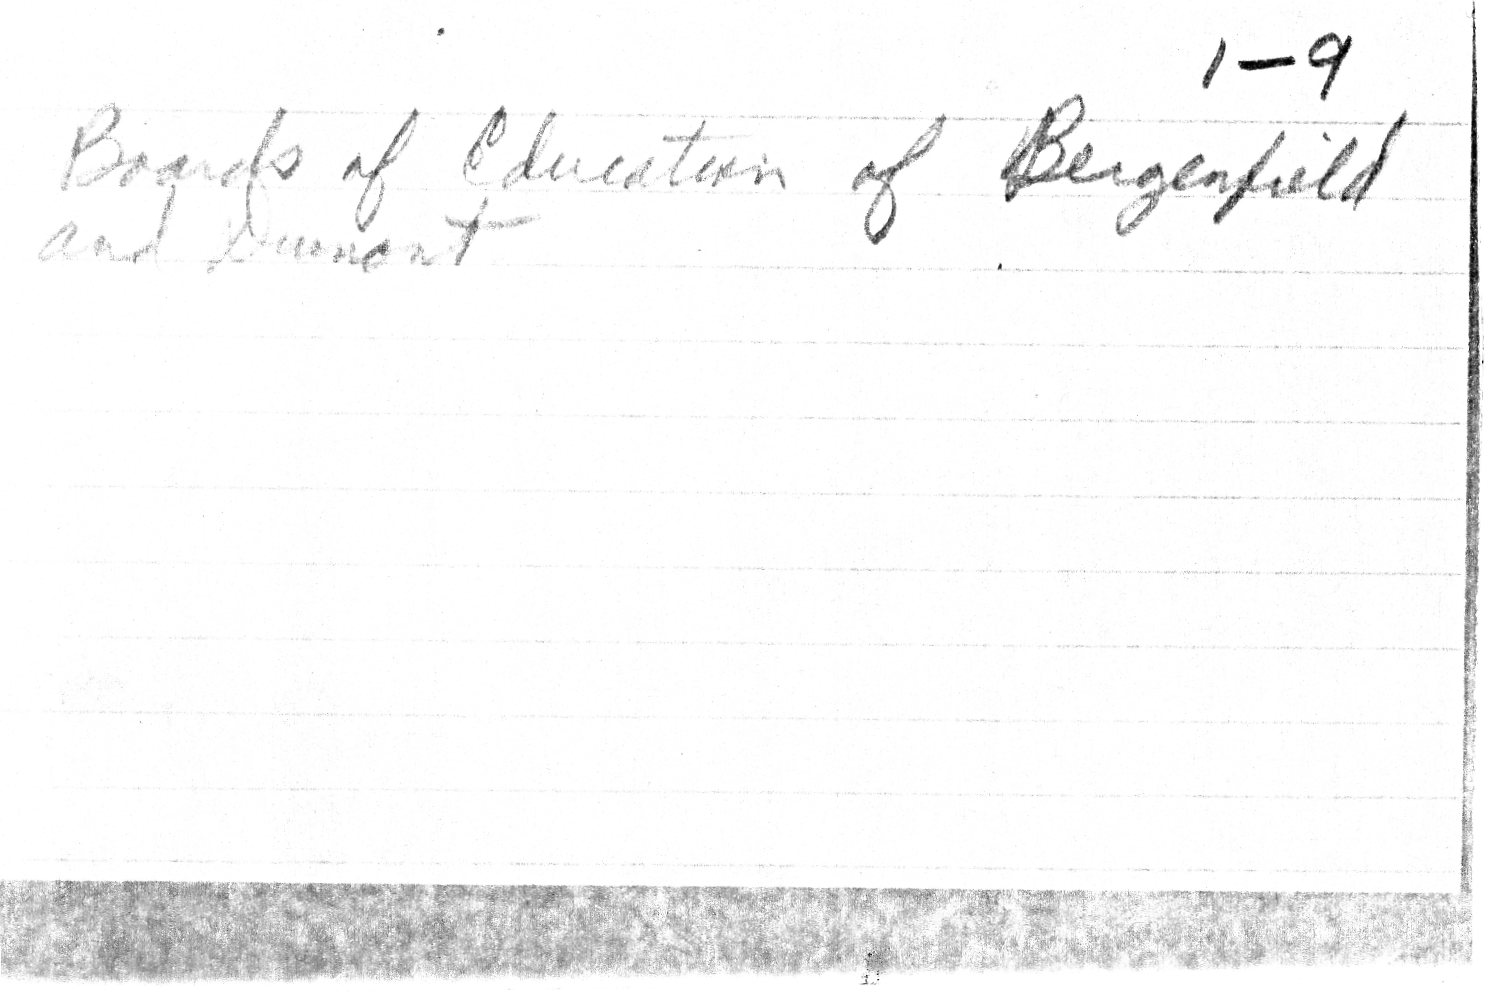 1-9
Boards of Education of Bergenfield
and Dumont